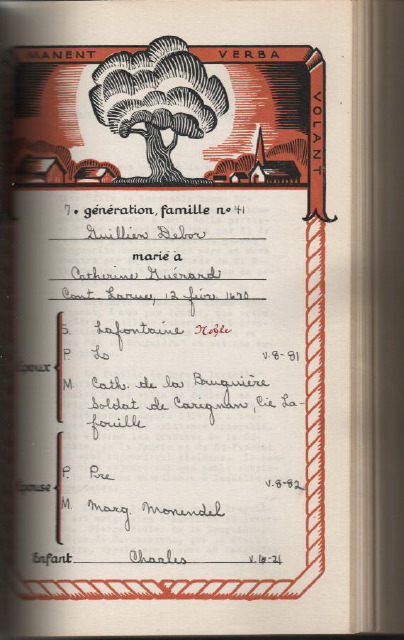 MANENT VERBA VOLANT
7. génération, famille nº 41
Guillien Debor
marié à
Catherine Guérard
Cont. Larue, 12 févr 1670
Époux
S. Lafontaine Noble
P. Ls V.8-81
M. Cath. de la Bruguière
Soldat de Carignan, Cie La-
fouille
Épouse
P. Pre V.8-82
M. Marg. Monendel
Enfant Charles V.10-21